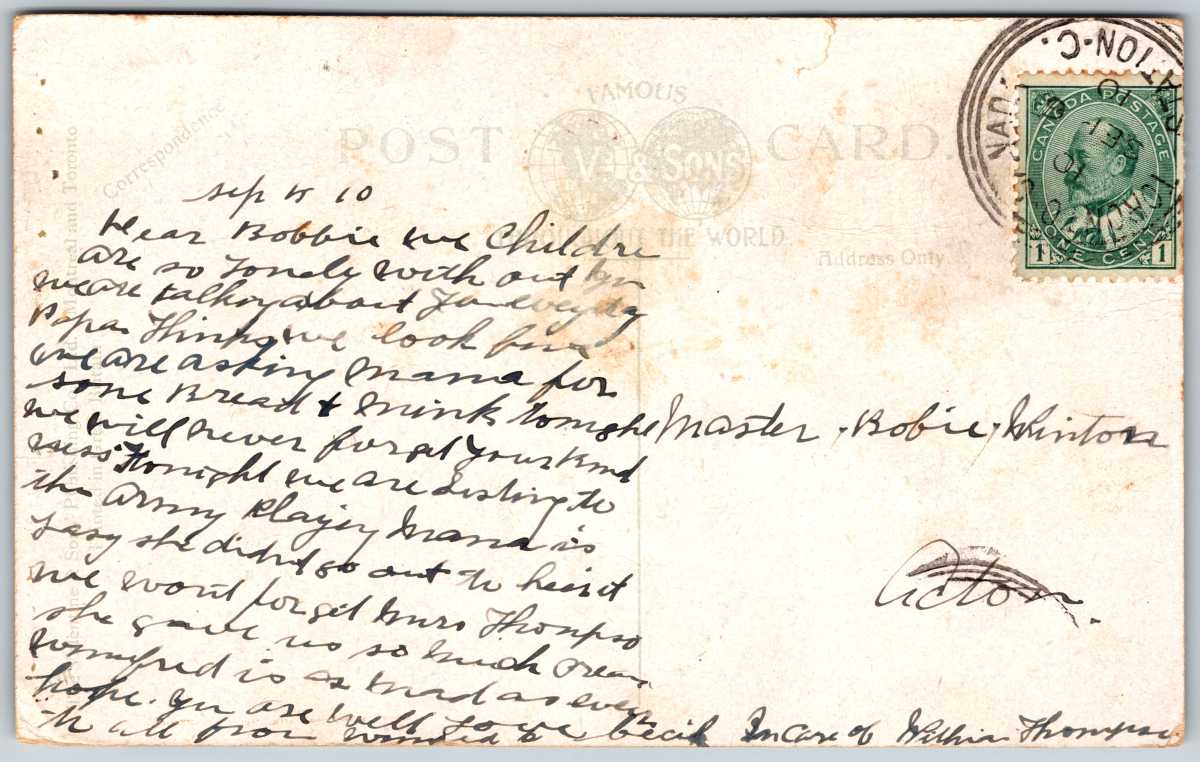 FAMOUS
POST CARD.
V & SONS
THE WORLD
Correspondence
Address Only
Montreal and Toronto
CANADA POSTAGE
1 ONE CENT 1
CANADA
STATION·C·
TORONTO
10
Sep 10
Dear Bobbie we Childre
are so lonely with out you
we are talking about you every day
Papa Thinks we look fine
we are asking Mama for
some Bread & Mink tonight
we will never forget your kind
ness tonight we are listing to
the army Playing Mama is
Lasy she didnt go out to hear it
we wont forget Mrs Thompso
she gave us so much cream
Winnyfred is as mad as ever
hope you are well Love
to all from Winnifred & Cecil
Master Bobie Winton
Acton.
In Care of Thompson